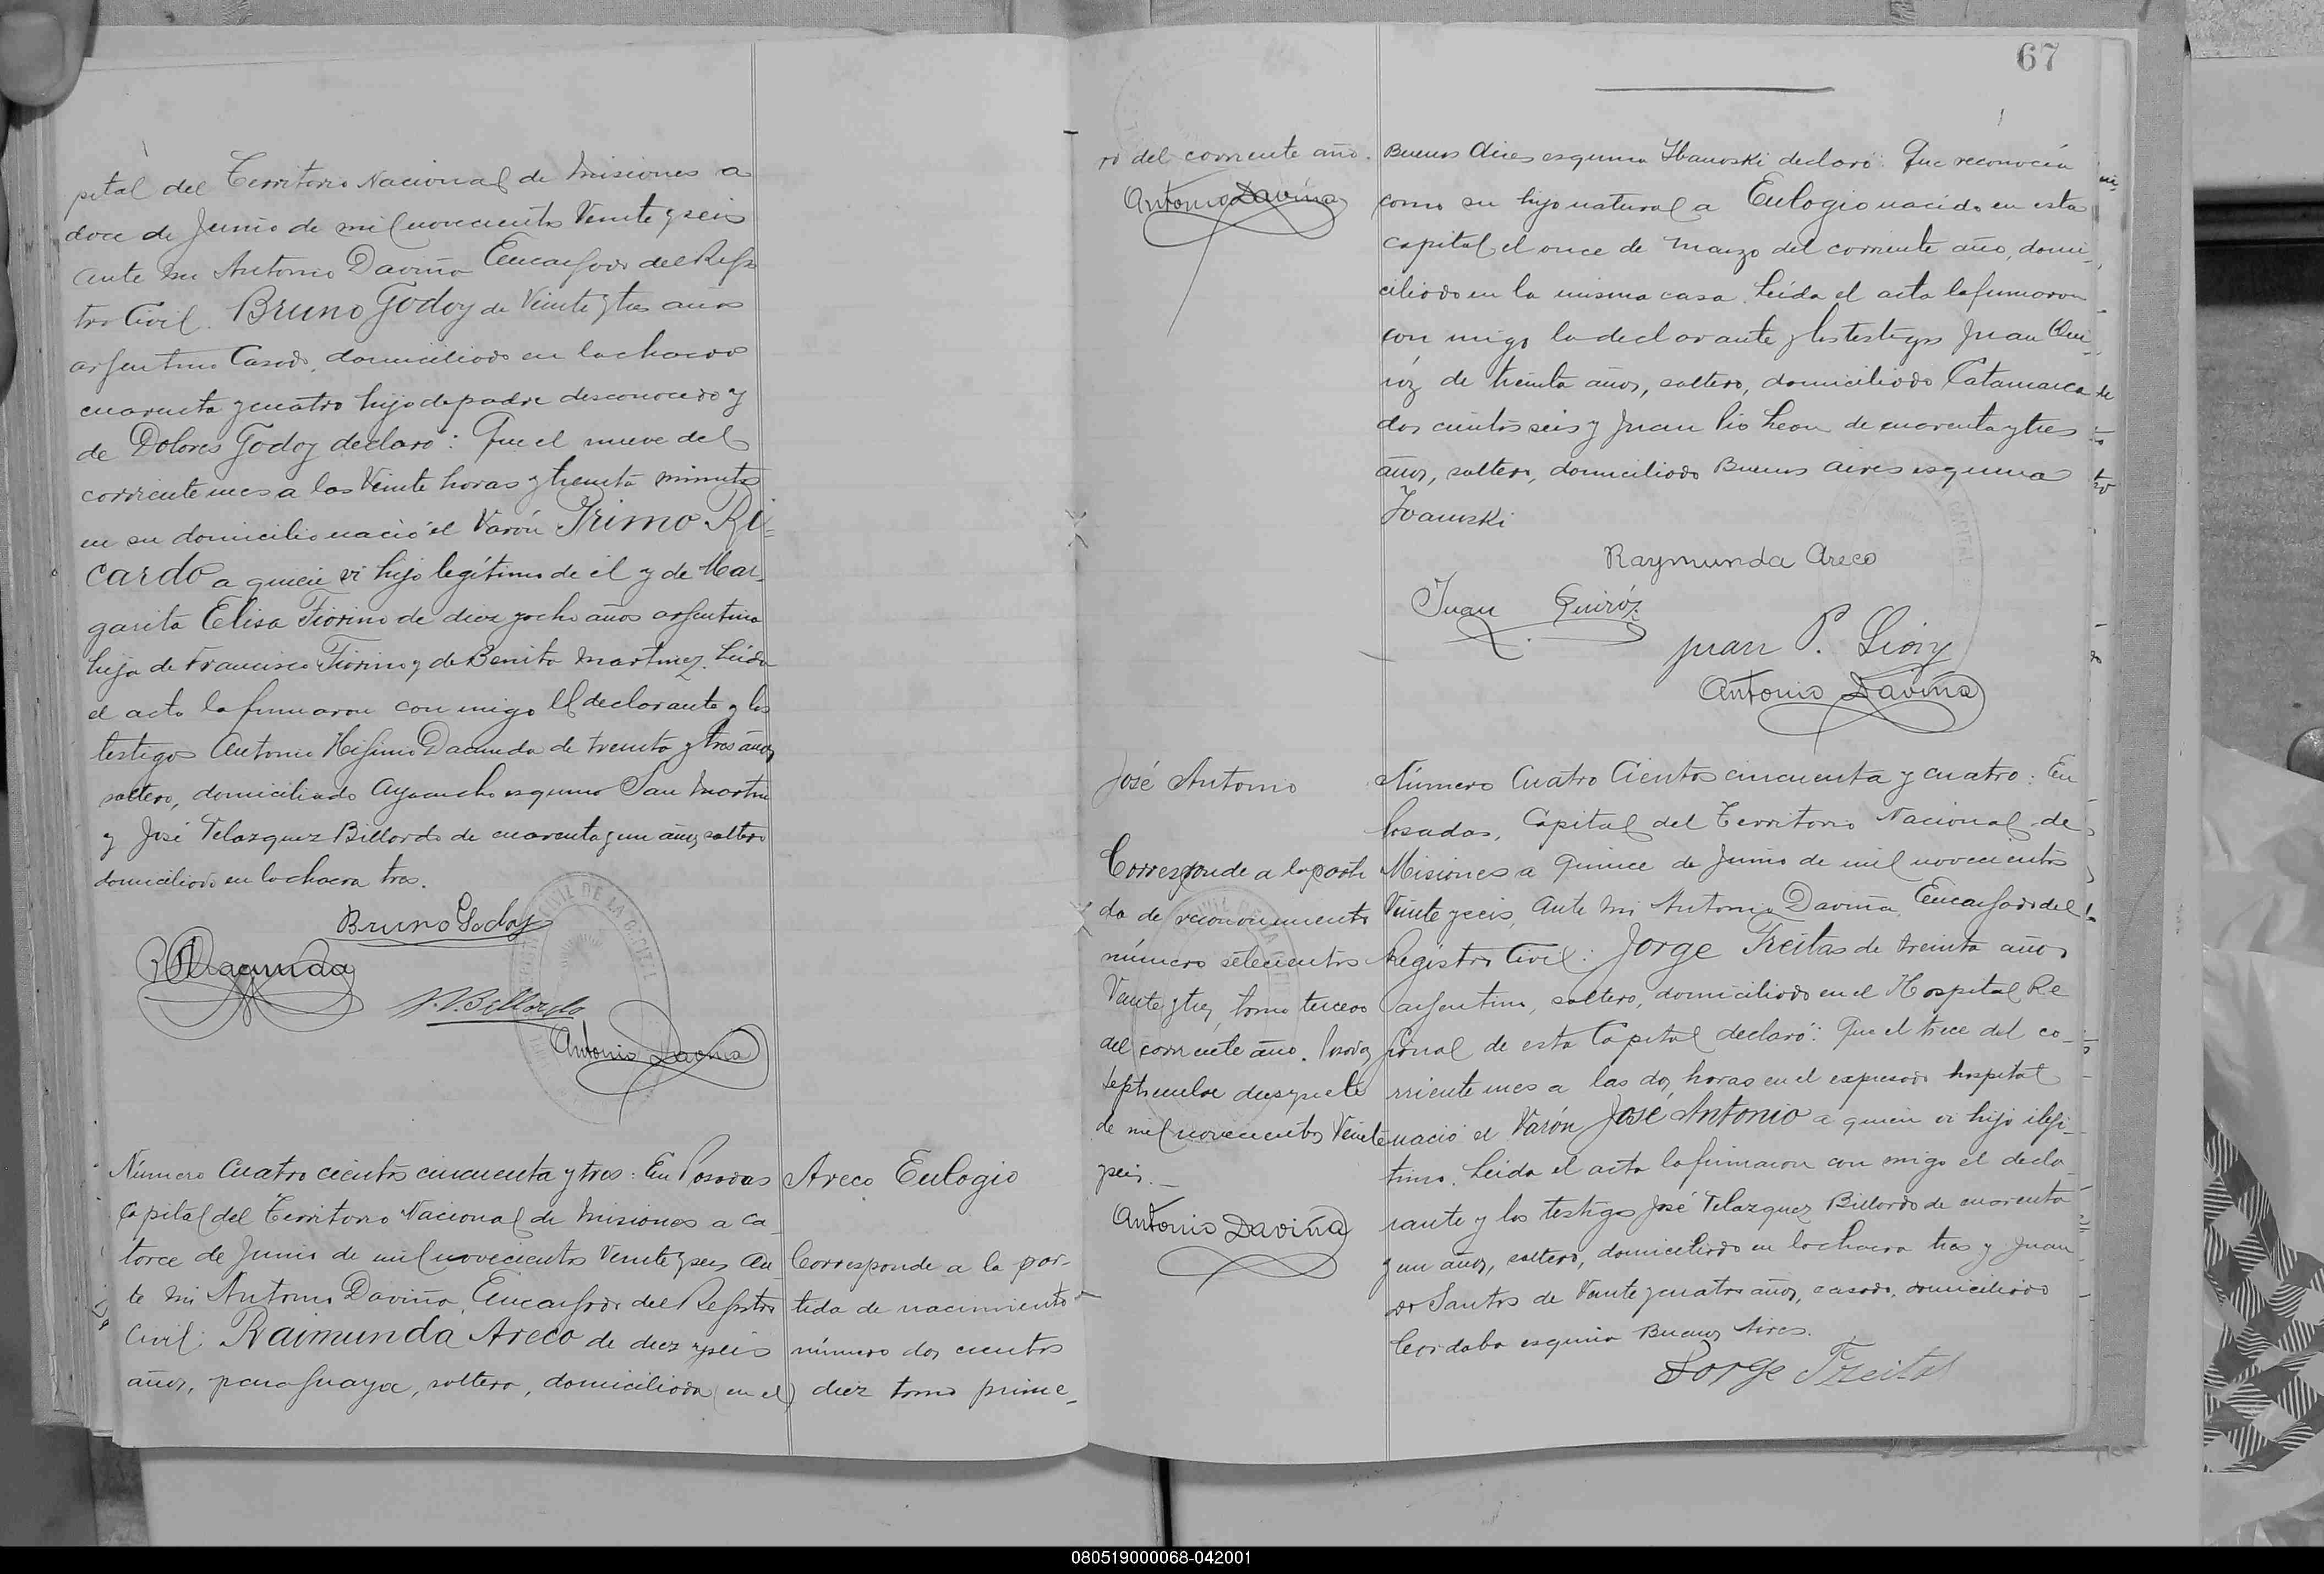 pital del Territorio Nacional de Misiones a
doce de Junio de mil novecientos Veinte y seis
ante mi Antonio Daviña Encargado del Regis
tro Civil. Bruno Godoy de Veinte y tres años
argentino Casado, domiciliado en la chacra
cuarenta y cuatro hijo de padre desconocido y
de Dolores Godoy declaró: Que el nueve del
corriente mes a las Veinte horas y treinta minutos
en su domicilio nació el Varón Primo Ri=
cardo a quien vi hijo legítimo de él y de Mar-
garita Elisa Fiorino de diez y ocho años argentina
hija de Francisco Fiorino y de Benita Martinez. Leida
el acta la firmaron con migo el declarante y los
testigos Antonio Higinio Dacunda de treinta y tres años
soltero, domiciliado Ayacucho esquina San Martin
y José Velazquez Billordo de cuarenta y un años soltero
domiciliado en la chacra tres.
Bruno Godoy
Dacunda
J. V. Billordo
Antonio Daviña
Número Cuatro cientos cincuenta y tres: En Posadas
Capital del Territorio Nacional de Misiones a ca-
torce de Junio de mil novecientos Veinte y seis an-
te mi Antonio Daviña, Encargado del Registro
Civil: Raimunda Areco de diez y seis
años, paraguaya, soltera, domiciliada en el
Areco Eulogio
Corresponde a la par-
tida de nacimiento
número dos cientos
diez tomo prime-
67
ro del corriente año.
Antonio Daviña
Buenos Aires esquina Ibanoski declaró: Que reconocia
como su hijo natural a Eulogio nacido en esta
capital el once de Marzo del corriente año, domi-
ciliado en la misma casa. Leída el acta la firmaron
con migo la declarante y los testigos Juan Qui-
róz de treinta años, soltero, domiciliado Catamarca
dos cientos seis y Juan Pio Leon de cuarenta y tres
años, soltero, domiciliado Buenos Aires esquina
Ivanoski
Raymunda Areco
Juan Quiróz
Juan P. Lión
Antonio Daviña
José Antonio
Corresponde a la parti
da de reconocimiento
número setecientos
Veinte y tres, tomo tercero
del corriente año. Posadas
septiembre diez y siete
de mil novecientos Veinte
y seis.-
Antonio Daviña
Número Cuatro Cientos cincuenta y cuatro: En
Posadas, Capital del Territorio Nacional de
Misiones a Quince de Junio de mil novecientos
Veinte y seis, Ante mi Antonio Daviña, Encargado del
Registro Civil: Jorge Freitas de treinta años
argentino, soltero, domiciliado en el Hospital Re
gional de esta Capital declaró: Que el trece del co-
rriente mes a las dos horas en el expresado hospital
nació el Varón José Antonio a quien vi hijo ilegi-
timo. Leida el acta la firmaron con migo el decla-
rante y los testigos José Velazquez Billordo de cuarenta
y un años, soltero, domiciliado en la chacra tres y Juan
do Santos de Veinte y cuatro años, casado, domiciliado
Cordoba esquina Buenos Aires.
Jorge Freitas
080519000068-042001